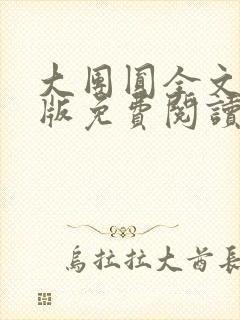 大團圓全文
版免費閱讀
烏拉拉大酋長